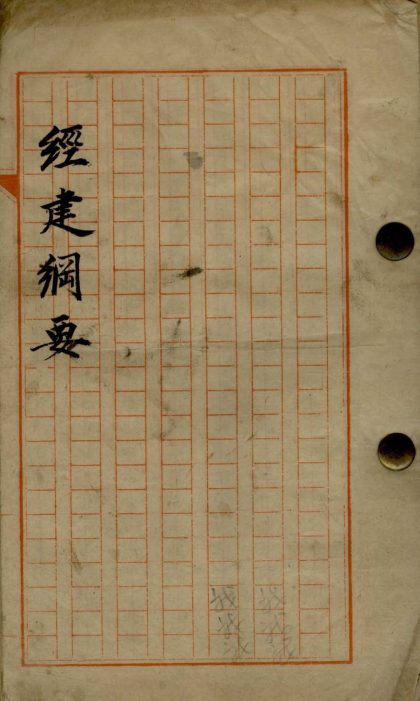 經建綱要